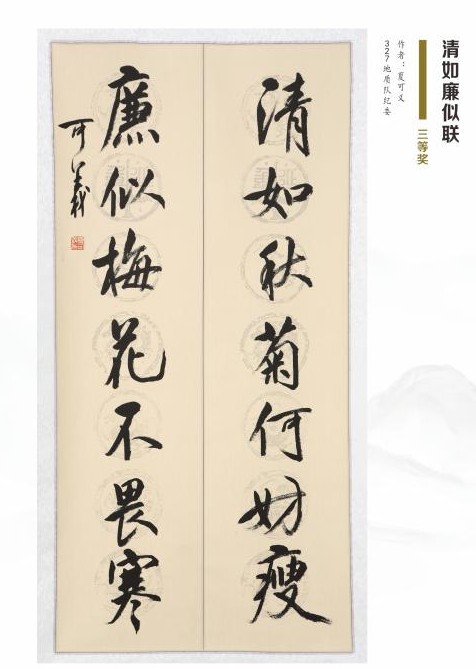 清如廉似联
三等奖
作者：夏可义
327地质队纪委
清如秋菊何妨瘦
廉似梅花不畏寒
可義